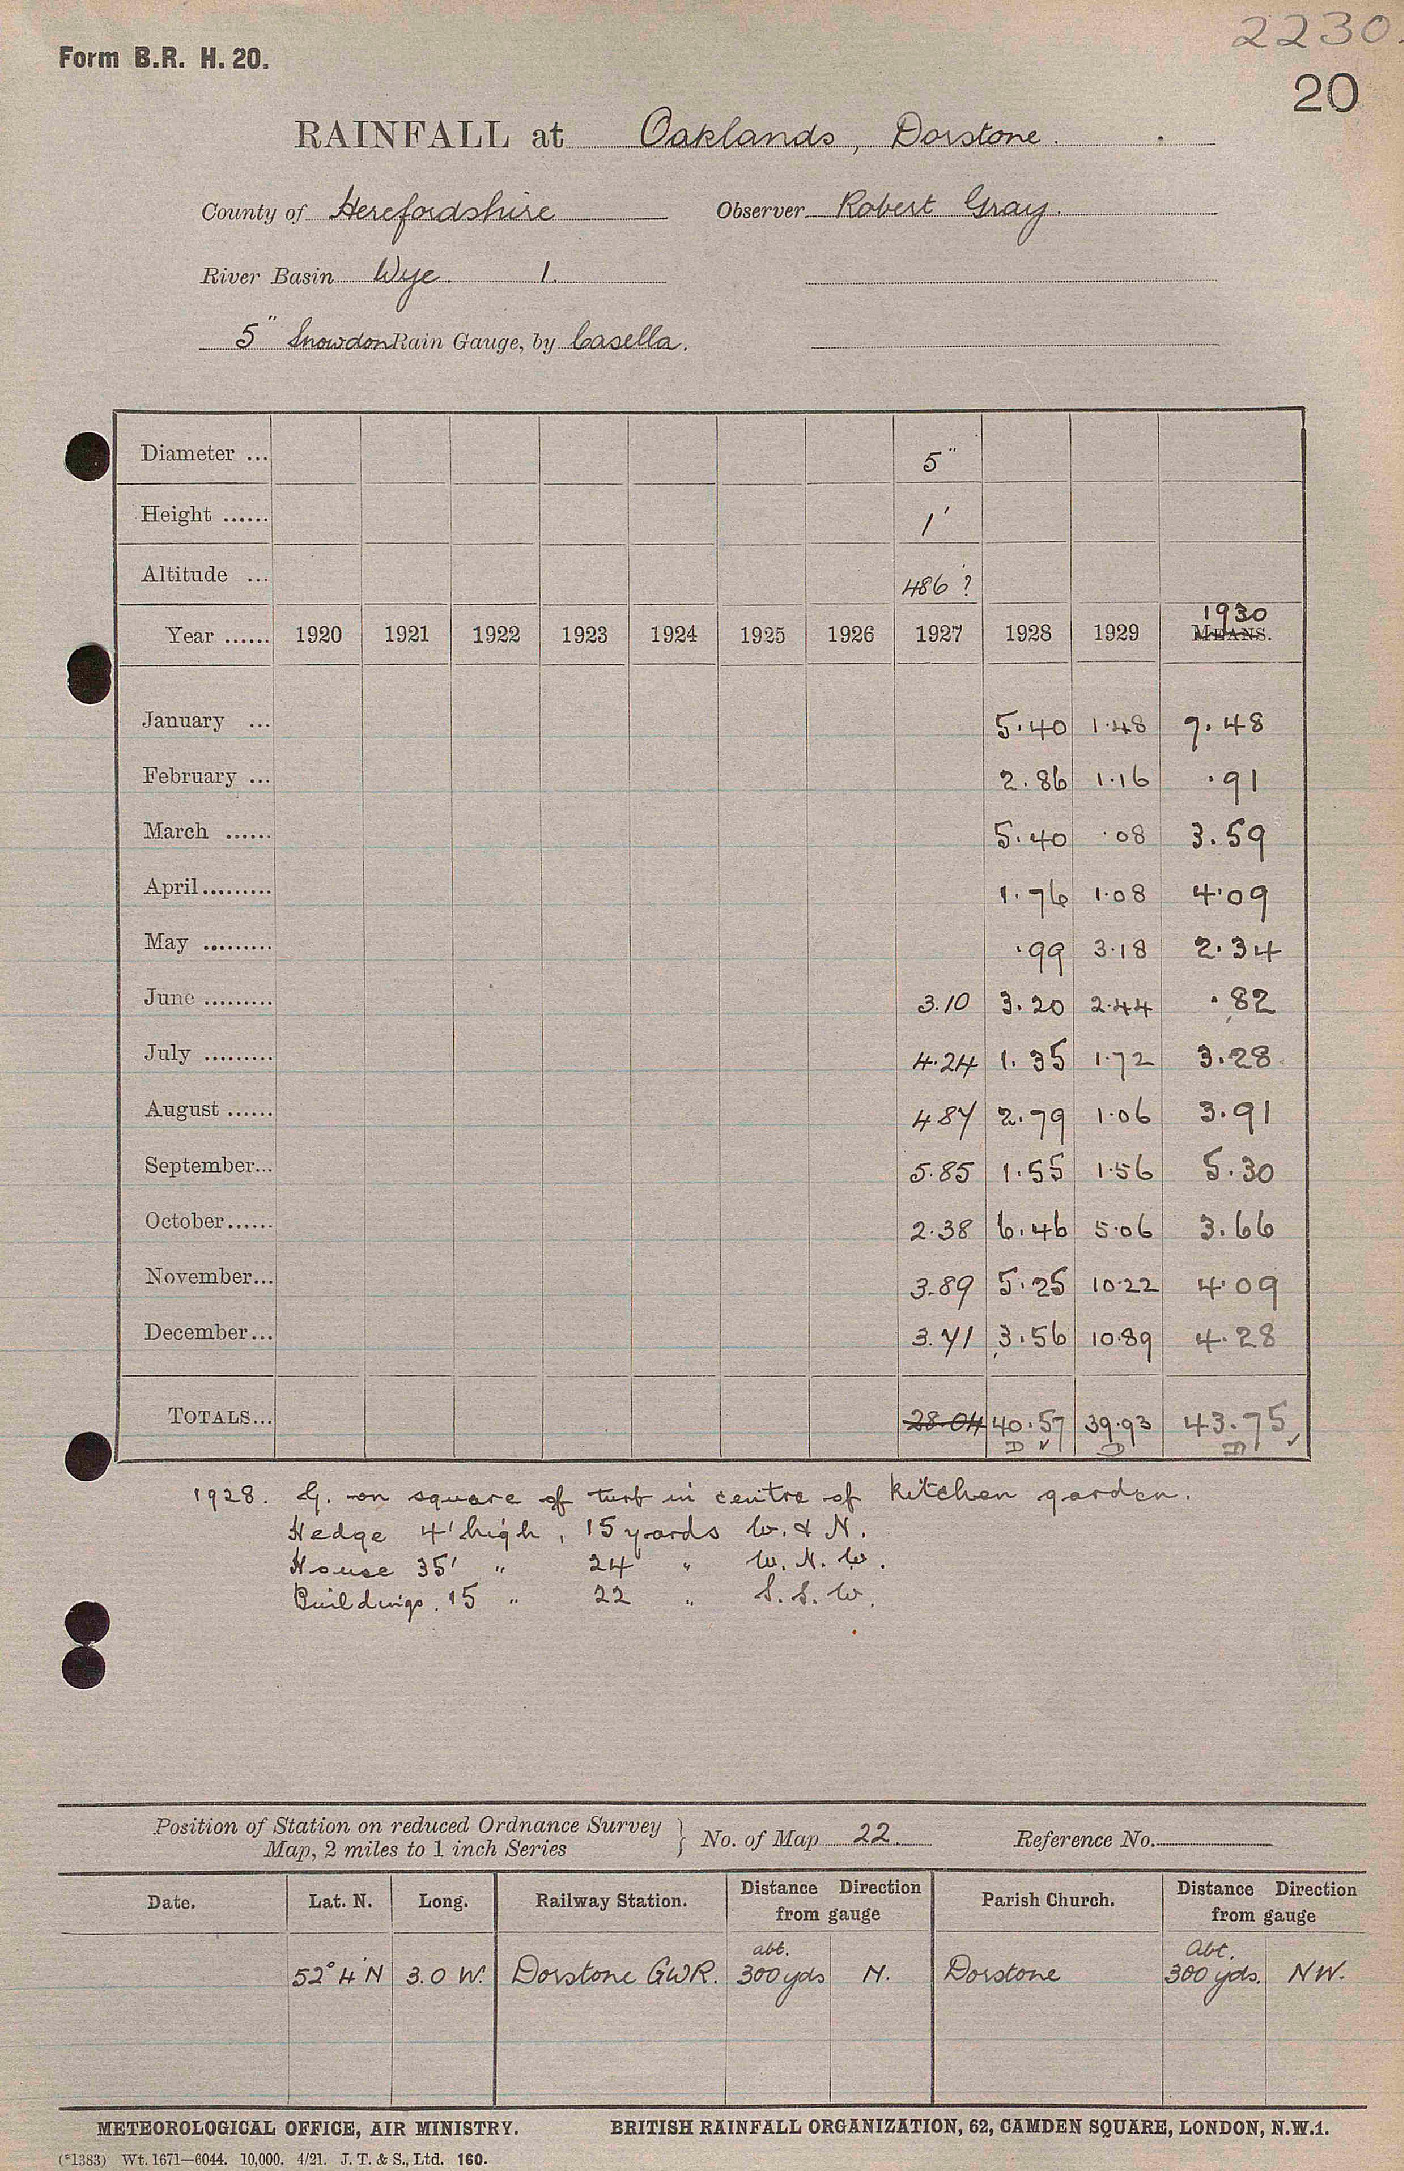 2230.
Form B.R. H. 20.
20
RAINFALL at Oaklands, Dorstone.
County of Herefordshire Observer Robert Gray.
River Basin Wye. 1.
5" Snowdon Rain Gauge, by Casella.
Diameter ... 5"
Height ...... 1'
Altitude ... 486 ?
1930
Year ...... 1920 1921 1922 1923 1924 1925 1926 1927 1928 1929 MEANS.
January ... 5.40 1.48 7.48
February ... 2.86 1.16 .91
March ...... 5.40 .08 3.59
April......... 1.76 1.08 4.09
May ......... .99 3.18 2.34
June ......... 3.10 3.20 2.44 .82
July ......... 4.24 1.35 1.72 3.28
August ...... 4.87 2.79 1.06 3.91
September... 5.85 1.55 1.56 5.30
October...... 2.38 6.46 5.06 3.66
November... 3.89 5.25 10.22 4.09
December... 3.71 3.56 10.89 4.28
TOTALS... 28.04 40.57 39.93 43.75 ✓
1928. G. on square of turf in centre of kitchen garden.
Hedge 4' high, 15 yards W. & N.
House 35' " 24 " W. N. W.
Buildings. 15 " 22 " S. S. W.
Position of Station on reduced Ordnance Survey
Map, 2 miles to 1 inch Series } No. of Map 22. Reference No.
Date. Lat. N. Long. Railway Station. Distance Direction from gauge Parish Church. Distance Direction from gauge
abt. Abt.
52° 4' N 3.0 W. Dorstone GWR. 300 yds N. Dorstone 300 yds. NW.
METEOROLOGICAL OFFICE, AIR MINISTRY. BRITISH RAINFALL ORGANIZATION, 62, CAMDEN SQUARE, LONDON, N.W.1.
(*1383) Wt. 1671—6044. 10,000. 4/21. J. T. & S., Ltd. 160.